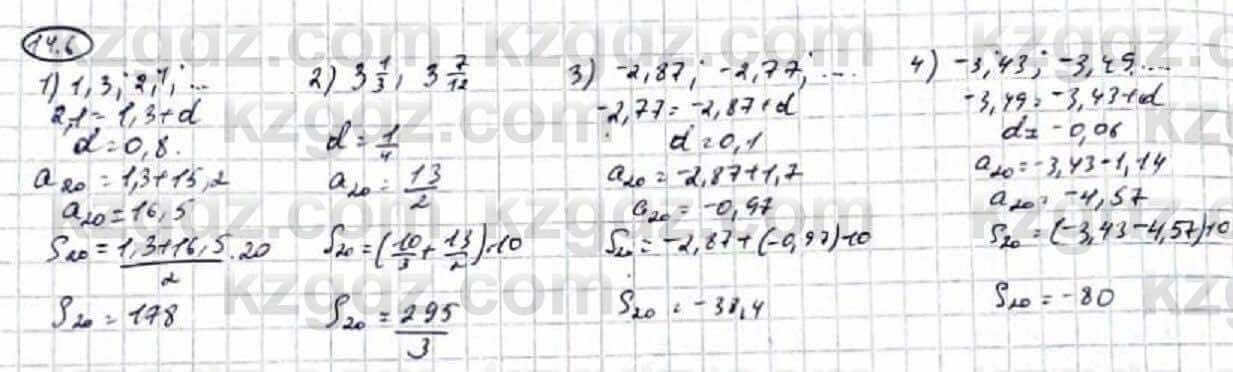 14.6
1) 1,3; 2,1; ...
2,1 = 1,3+d
d = 0,8.
a₂₀ = 1,3+15,2
a₂₀ = 16,5
S₂₀ = (1,3+16,5)/2 · 20
S₂₀ = 178
2) 3 1/3; 3 7/12
d = 1/4
a₂₀ = 13/2
S₂₀ = (10/3 + 13/2)·10
S₂₀ = 295/3
3) -2,87; -2,77; ...
-2,77 = -2,87+d
d = 0,1
a₂₀ = -2,87+1,7
a₂₀ = -0,97
S₂₀ = -2,87+(-0,97)·10
S₂₀ = -38,4
4) -3,43; -3,49...
-3,49 = -3,43+d
d = -0,06
a₂₀ = -3,43-1,14
a₂₀ = -4,57
S₂₀ = (-3,43-4,57)·10
S₂₀ = -80
kzgdz.com kzgdz.com kzgdz.com
kzgdz.com kzgdz.com kzgdz.com kz
kzgdz.com kzgdz.com kzgdz.com
kzgdz.com kzgdz.com kzgdz.com kz